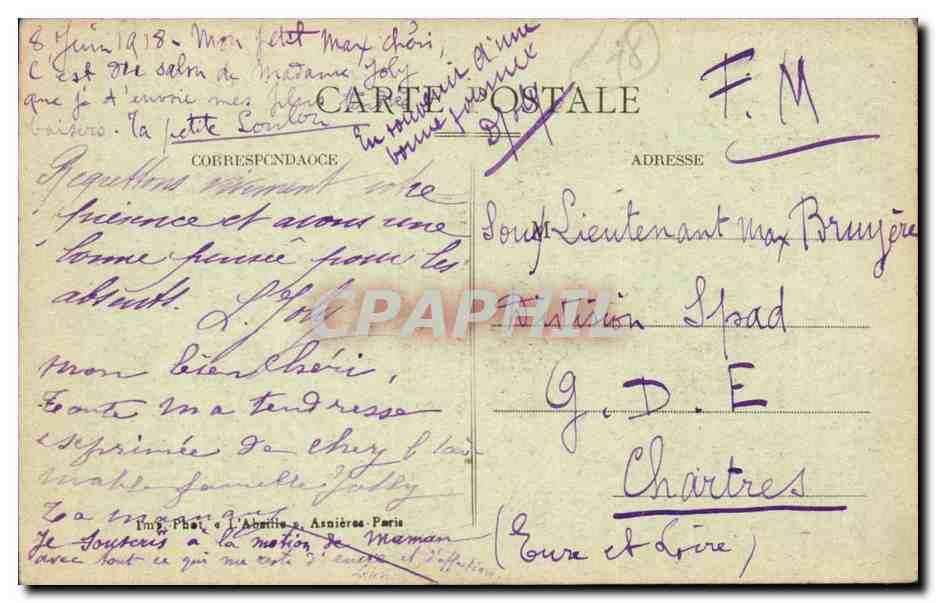 8 Juin 1918 - Mon petit Max chéri,
C'est du salon de Madame Joly
que je t'envoie mes plus
baisers. Ta petite Loulou
En souvenir d'une
bonne journée
78
F. M
CARTE POSTALE
CORRESPONDANCE
ADRESSE
Regrettons vivement votre
présence et avons une
bonne pensée pour les
absents.
L. Joly
Mon bien chéri,
Toute ma tendresse
exprimée de chez l'ai-
mable famille Jolly
Ta maman
Imp. Phot. « L'Abeille », Asnières-Paris
Je souscris à la motion de Maman
avec tout ce qui me reste d'encre et d'affection
Sous Lieutenant Max Bruyère
Division Spad
G. D. E
Chartres
(Eure et Loire)
CPAPHIL